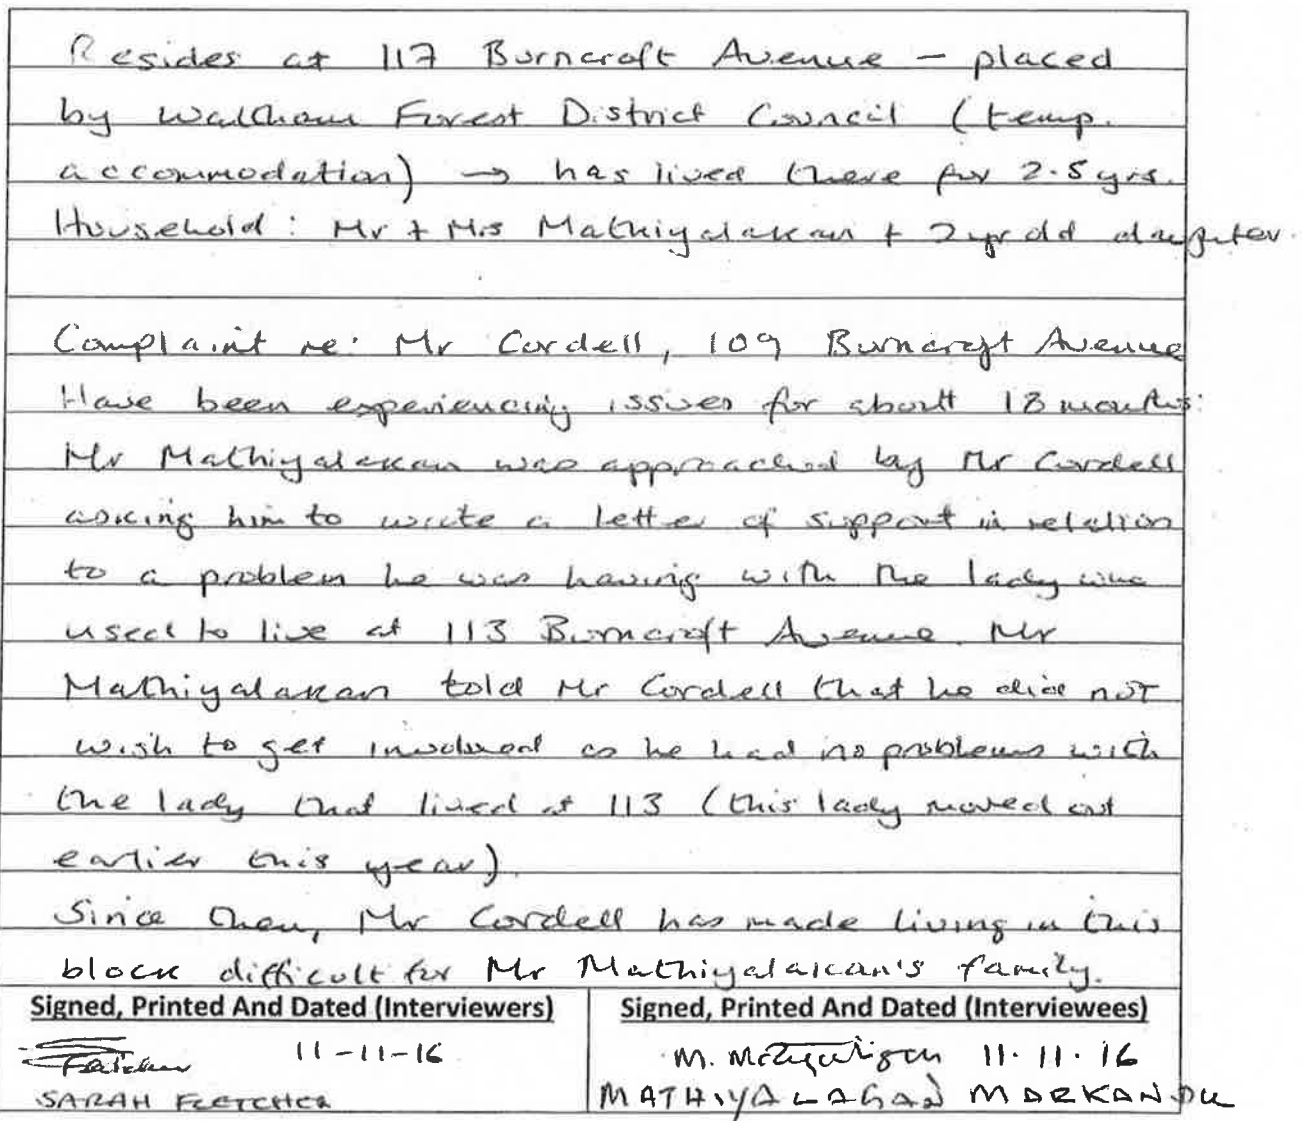 Resides at 117 Burncroft Avenue – placed
by Waltham Forest District Council (temp.
accommodation) → has lived there for 2.5 yrs.
Household: Mr + Mrs Mathiyalakan + 2yr old daughter.
Complaint re: Mr Cordell, 109 Burncroft Avenue
Have been experiencing issues for about 18 months:
Mr Mathiyalakan was approached by Mr Cordell
asking him to write a letter of support in relation
to a problem he was having with the lady who
used to live at 113 Burncroft Avenue. Mr
Mathiyalakan told Mr Cordell that he did not
wish to get involved as he had no problems with
the lady that lived at 113 (this lady moved out
earlier this year).
Since then, Mr Cordell has made living in this
block difficult for Mr Mathiyalakan's family.
Signed, Printed And Dated (Interviewers)
Signed, Printed And Dated (Interviewees)
Fletcher 11-11-16
M. 11.11.16
SARAH FLETCHER
MATHIYALAGAN MARKANDU